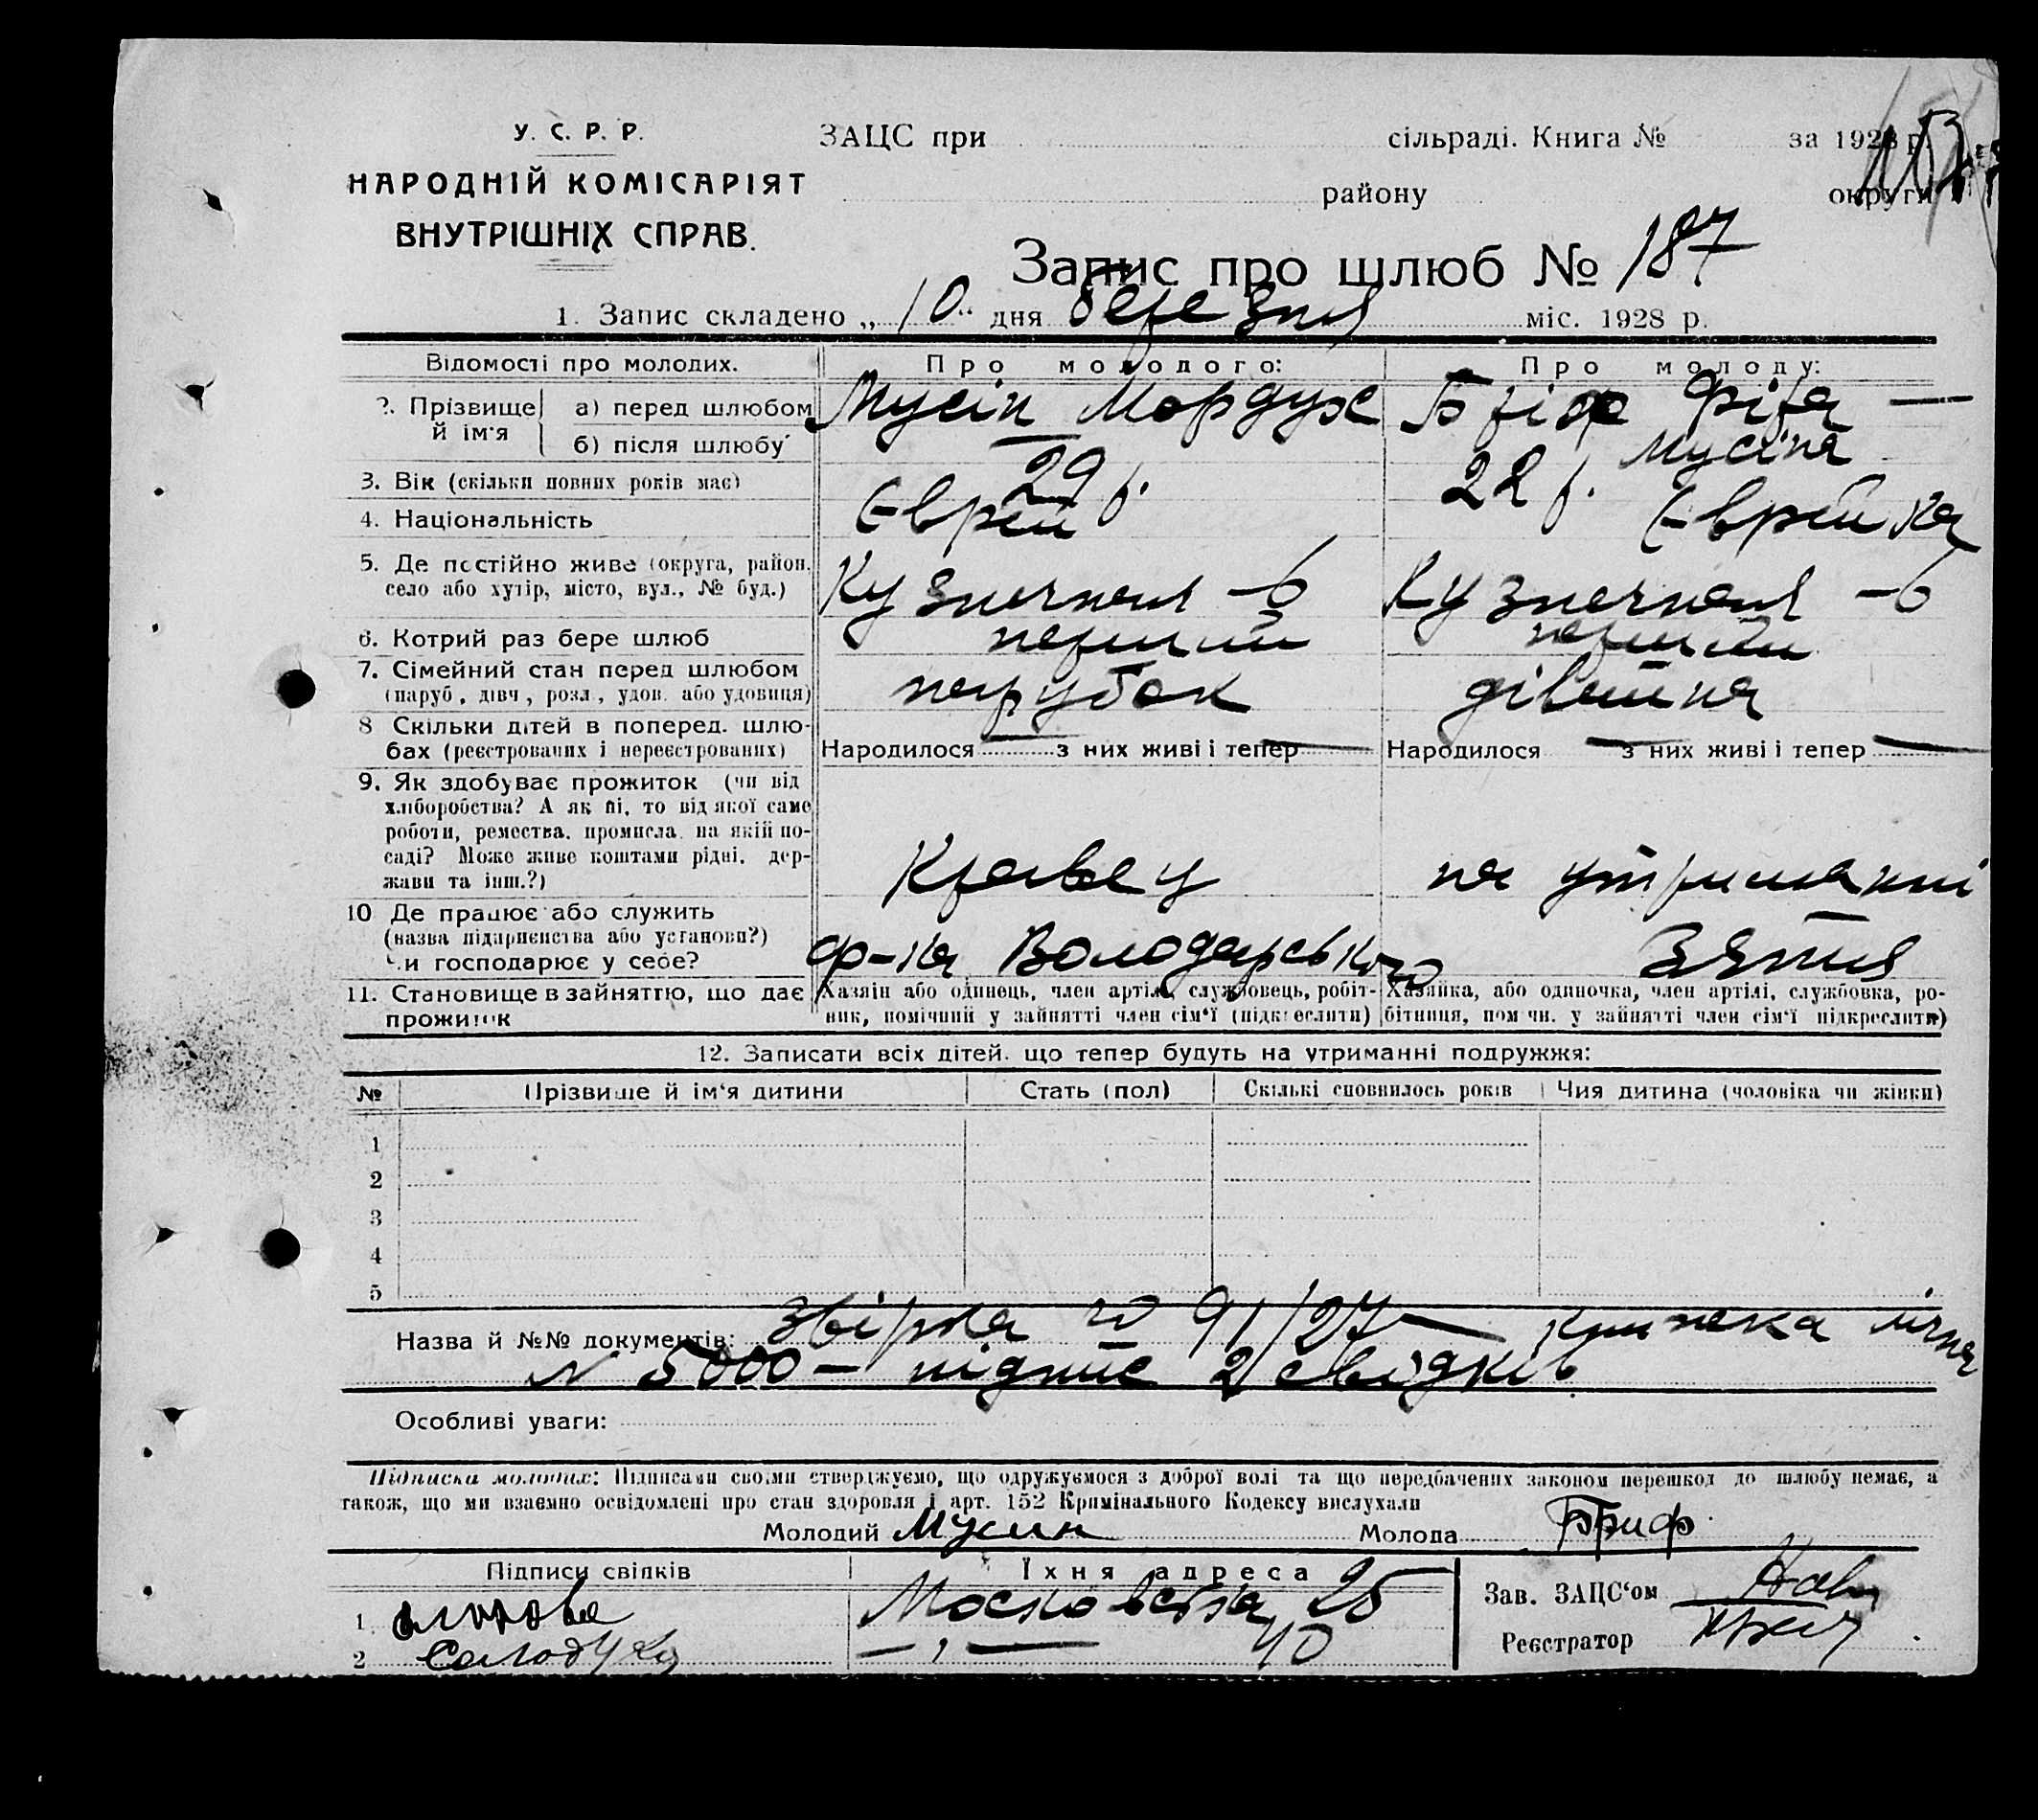 У. С. Р. Р.
НАРОДНІЙ КОМІСАРІЯТ
ВНУТРІШНІХ СПРАВ.
ЗАЦС при сільраді. Книга № за 1928 р.
району округи
Запис про шлюб № 187
1. Запис складено „ 10 " дня березня міс. 1928 р.
Відомості про молодих. Про молодого: Про молоду:
2. Прізвище й ім'я а) перед шлюбом Мусін Мордух Бріф Фіра —
б) після шлюбу — Мусіна
3. Вік (скільки повних років має) 29 р. 22 р.
4. Національність Єврей Єврейка
5. Де постійно живе (округа, район, село або хутір, місто, вул., № буд.) Кузнечная – 6 Кузнечная – 6
6. Котрий раз бере шлюб перший перший
7. Сімейний стан перед шлюбом (паруб., дівч., розл., удов. або удовиця) парубок дівчина
8 Скільки дітей в поперед. шлюбах (реєстрованих і нереєстрованих) Народилося — з них живі і тепер — Народилося — з них живі і тепер —
9. Як здобуває прожиток (чи від хліборобства? А як ні, то від якої саме роботи, ремества, промисла, на якій посаді? Може живе коштами рідні, держави та інш.?) Кравец на утриманні
10 Де працює або служить (назва підприємства або установи?) Чи господарює у себе? ф-ка Володарського Зятя
11. Становище в зайняттю, що дає прожиток Хазяїн або одинець, член артілі, службовець, робітник, помічний у зайнятті член сім'ї (підкреслити) Хазяйка, або одиночка, член артілі, службовка, робітниця, помічн. у зайнятті член сім'ї підкреслити)
12. Записати всіх дітей, що тепер будуть на утриманні подружжя:
№ Прізвище й ім'я дитини Стать (пол) Скількі сповнилось років Чия дитина (чоловіка чи жінки)
1
2
3
4
5
Назва й №№ документів: 91/27 — книжка
№ 5000 — підпис 2 свідків
Особливі уваги:
Підписка молодих: Підписами своїми стверджуємо, що одружуємося з доброї волі та що передбачених законом перешкод до шлюбу немає, а
також, що ми взаємно освідомлені про стан здоровля і арт. 152 Кримінального Кодексу вислухали
Молодий Мусин Молода Бриф
Підписи свідків Їхня адреса
1 Московська 25
2 Солодуха —„— 40
Зав. ЗАЦС'ом
Реєстратор